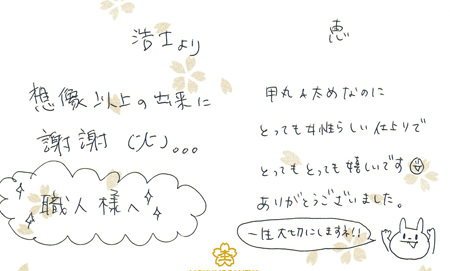 浩士より
想像以上の出来に
謝謝(火)...
職人様へ
恵
甲丸&太めなのに
とっても女性らしい仕上りで
とってもとっても嬉しいです
ありがとうございました。
一生大切にしますね!!